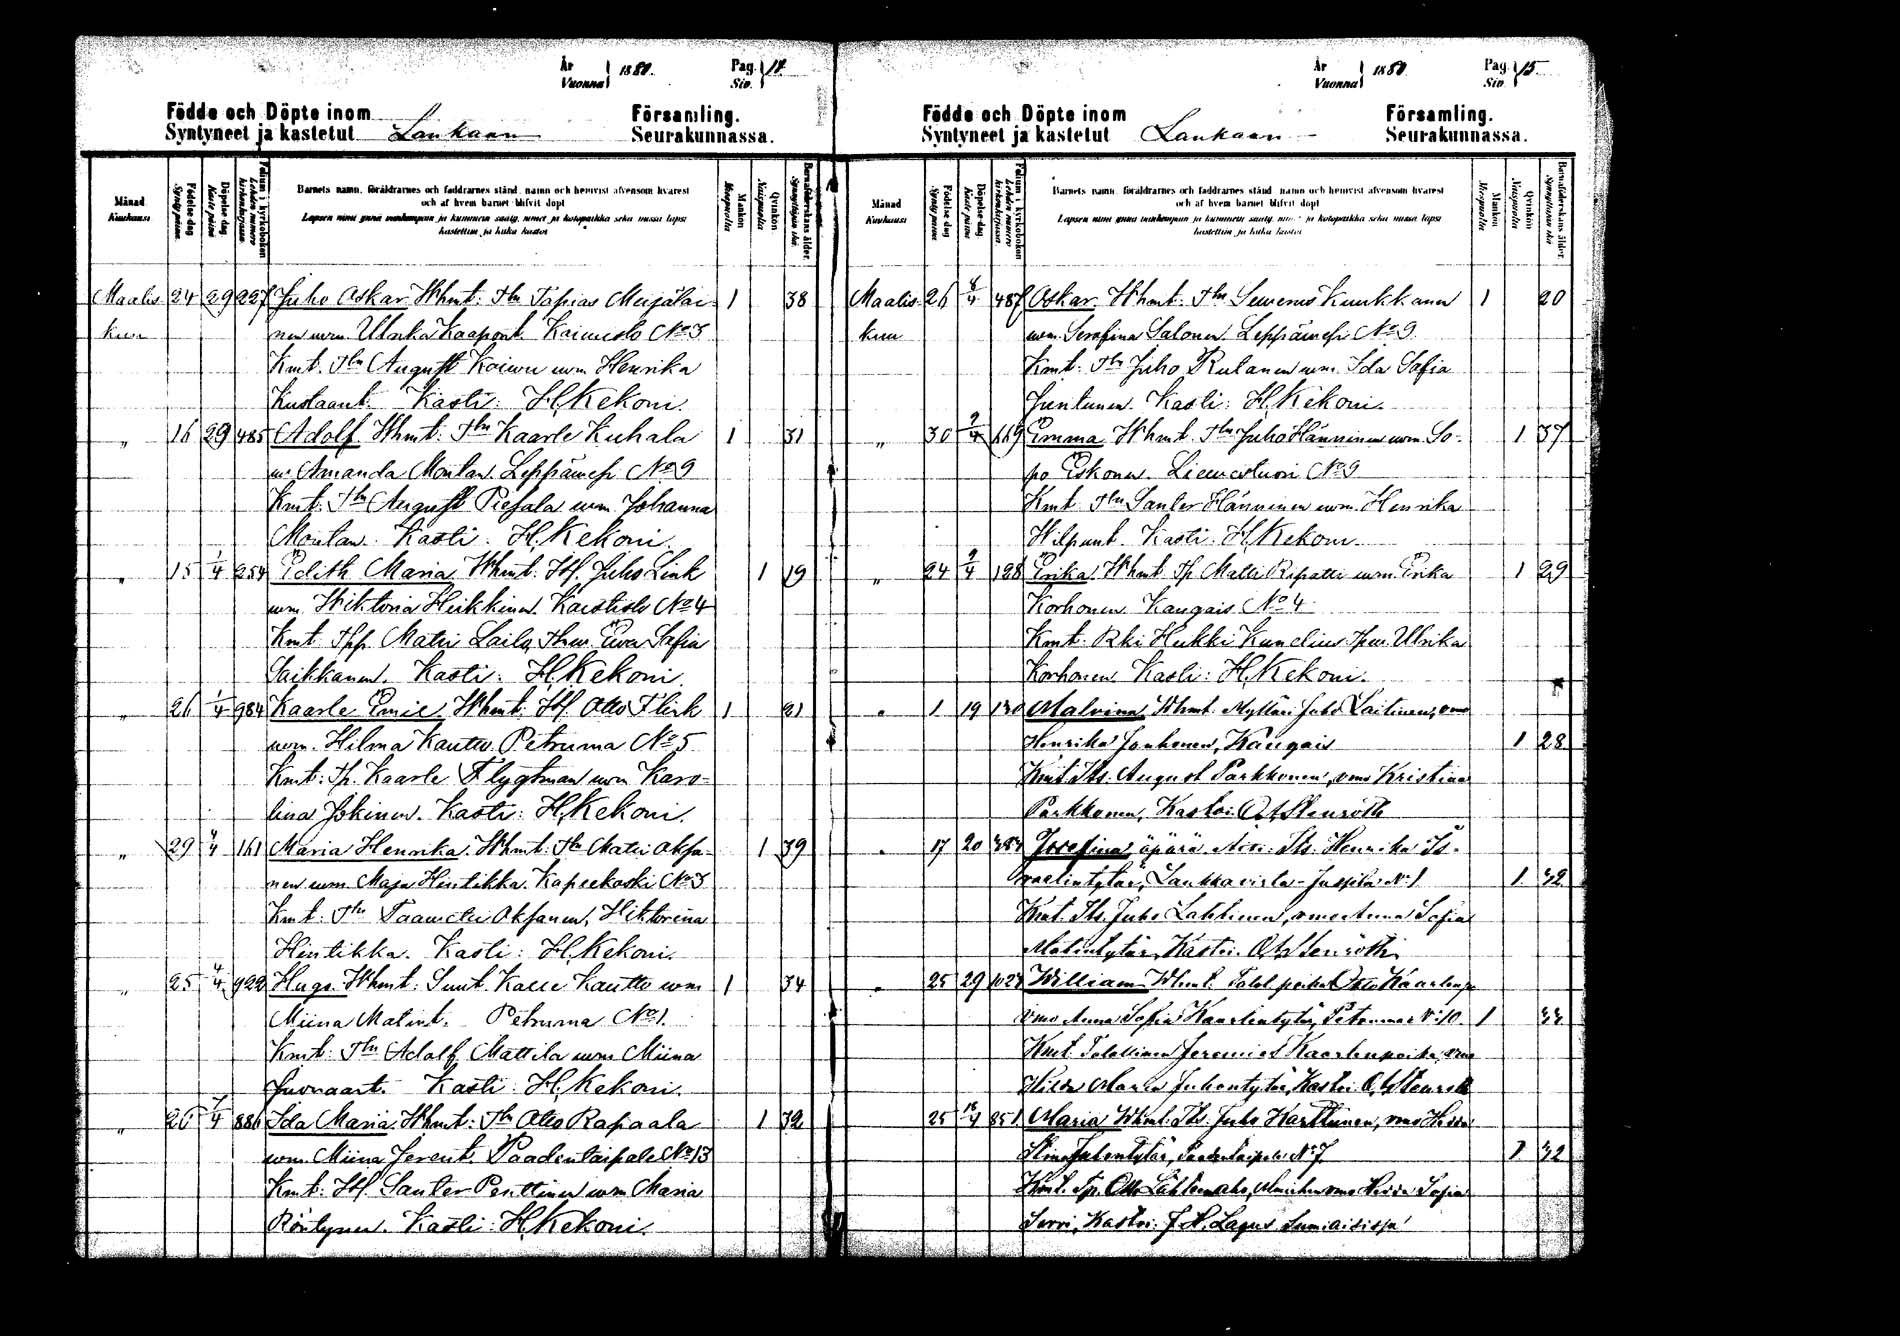 År
Vuonna 1880. Pag.
Siv. 14
Födde och Döpte inom
Syntyneet ja kastetut Laukaan Församling.
Seurakunnassa.
Månad
Kuukausi
Födelse dag
Syntypäivä
Döpelse dag
Kastepäivä
Folium i kyrkoboken
Lehden numero kirkonkirjassa.
Barnets namn, föräldrarnes och faddrarnes stånd, namn och hemvist äfvensom hvarest
och af hvem barnet blifvit döpt
Lapsen nimi ynnä vanhempain ja kummein sääty, nimet ja kotopaikka sekä missä lapsi
kastettiin ja kuka kastoi
Mankön
Miespuolia
Qvinkön
Naispuolia
Barnaföderskans ålder.
Synnyttäjän ikä
Maalis 24 29 227 Juho Oskar. Whmt: Tln Tapias Mujälai- 1 38
kuu nen wm. Ulrika Kaapont. Kuusa No 3
Kmt. Tln August Koiwu wm Henrika
Kustaant. Kasti: H. Kekoni.
" 16 29 485 Adolf. Whmt: Tln Kaarle Kuhala 1 31
w. Amanda Montan. Leppäwesi No 9
Kmt. Tln August Piesala wm. Johanna
Montan. Kasti: H. Kekoni.
" 15 1/4 254 Edith Maria. Whmt: Itl. Juho Link 1 19
wm. Wiktoria Heikkinen. No 4
Kmt: Tpp. Matti Laila, Ewa Sofia
Saikkanen. Kasti: H. Kekoni.
" 26 1/4 984 Kaarle Emil. Whmt: Itl. Otto Flink 1 21
wm. Hilma Kautto. Petruma No 5
Kmt: Tp. Kaarle Flygtman wm Karo-
lina Jokinen. Kasti: H. Kekoni.
" 29 4/4 161 Maria Henrika. Whmt: Tln Matti Oksa- 1 39
nen wm. Maja Hintikka. Kapeekoski No 3
Kmt: Tln Taawetti Oksanen, Wiktorina
Hintikka. Kasti: H. Kekoni.
" 25 4/4 922 Hugo. Whmt: Kalle Kautto wm 1 34
Miina Matint. Petruma No 1.
Kmt: Tln Adolf Mattila wm Miina
Juonaant. Kasti: H. Kekoni.
" 26 7/4 886 Ida Maria. Whmt: Tln Otto Rapaala 1 32
wm. Miina Jerent. Paadentaipale No 13
Kmt: Itl. Santer Penttinen wm Maria
Röntynen. Kasti: H. Kekoni.
År
Vuonna 1880 Pag.
Siv. 15.
Födde och Döpte inom
Syntyneet ja kastetut Laukaan Församling.
Seurakunnassa.
Månad
Kuukausi
Födelse dag
Syntypäivä
Döpelse dag
Kastepäivä
Folium i kyrkoboken
Lehden numero kirkonkirjassa.
Barnets namn, föräldrarnes och faddrarnes stånd, namn och hemvist äfvensom hvarest
och af hvem barnet blifvit döpt
Lapsen nimi ynnä vanhempain ja kummein sääty, nimet ja kotopaikka sekä missä lapsi
kastettiin ja kuka kastoi
Mankön
Miespuolia
Qvinkön
Naispuolia
Barnaföderskans ålder.
Synnyttäjän ikä
Maalis 26 8/4 487 Oskar. Whmt: Tln Sewerus Kuukkanen 1 20
kuu wm. Serafina Salonen. Leppäwesi No 9.
Kmt: Tln Juho Rutanen wm. Ida Sofia
Juntunen. Kasti: H. Kekoni.
" 30 9/4 669 Emma. Whmt. Tln Juho Hänninen wm. So- 1 37
po Eskonen. Liewestuori No 9
Kmt Tln Santer Hänninen wm. Henrika
Wilpunt. Kasti: H. Kekoni.
" 24 9/4 128 Erika. Whmt. Tp Matti Ripatti wm. Erika 1 29
Korhonen. Kangais No 4
Kmt: Rki Heikki Kunelius, Ulrika
Korhonen. Kasti: H. Kekoni.
" 1 19 130 Malvina. Whmt. Mylläri Juho Laitinen, vmo
Henrika Jonhonen, Kangais 1 28
Kmt. Tls. August Parkkonen, vmo Kristina
Parkkonen, Kastoi: O. A. Stenroth
" 17 20 Josefina äpärä. Äiti: Tls. Henrika Is-
raelintytär, Laukkavirta - Jussila No 1 1 32
Kmt. Tls. Juho Lahtinen, vmo Anna Sofia
Matintytär, Kastoi: O. A. Stenroth
" 25 29 William Whmt. Talol. poika Otto Kaarlenp.
vmo Anna Sofia Kaarlentytär, Petruma No 10. 1 33
Kmt. Talollinen Jeremias Kaarlenpoika, vmo
Hilda Maria Juhontytär, Kastoi: O. A. Stenroth
25 18/4 851 Maria Whmt. Tls. Juho Karttunen, vmo Hedda
Stina Juhontytär, Paadentaipale No 7 1 32
Kmt. Tp. Otto Lähteenaho, vmo Hedda Sofia
Sorri, Kastoi: J. A. Lagus Sumiaisissa